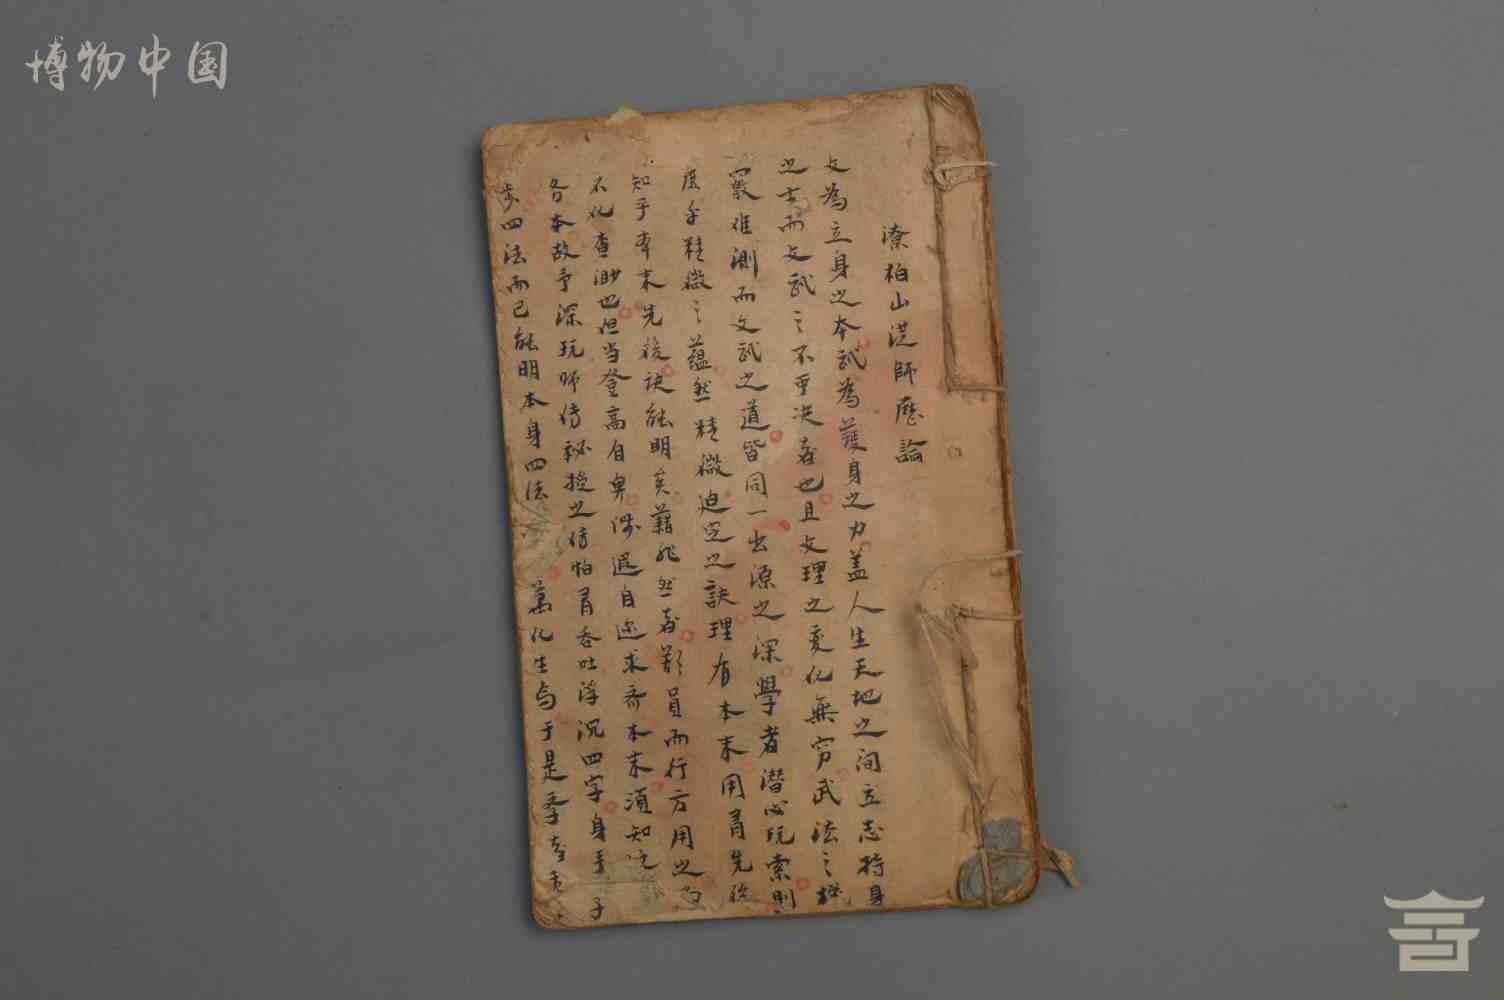 博物中国
柏山洪師歷論
文為立身之本武為護身之力蓋人生天地之间立志持身
之而文武之不可决者也且文理之变化無穷武法之极
难測而文武之道皆同一出源之深學者潜心玩索則
度乎精微之蘊然精微迫定之訣理有本末用有先後
知乎本末先後訣能明矣藉非然者欺員而行方用之而
不化查渺也但当登高自卑涉遐自迩求希本末須知
各本故予深玩师传秘授之传怕有吞吐浮沉四字身手子
步四法而已能明本身四法萬化生焉于是